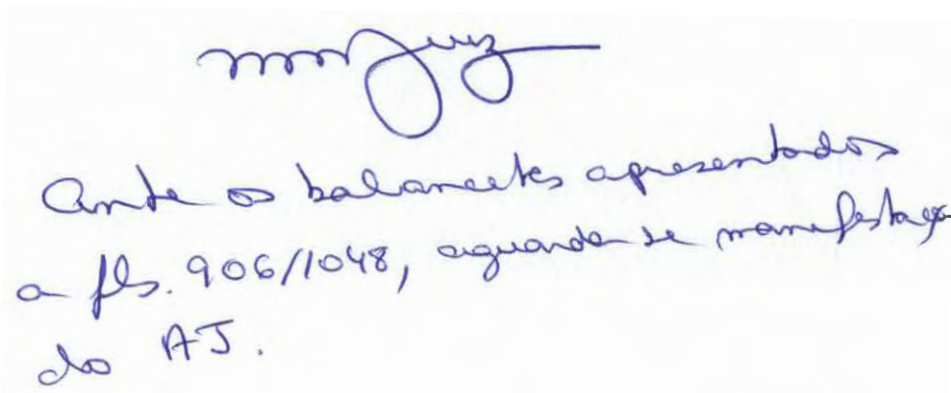 MM Juiz
Ante os balancetes apresentados
a fls. 906/1048, aguarda-se manifestação
do AJ.